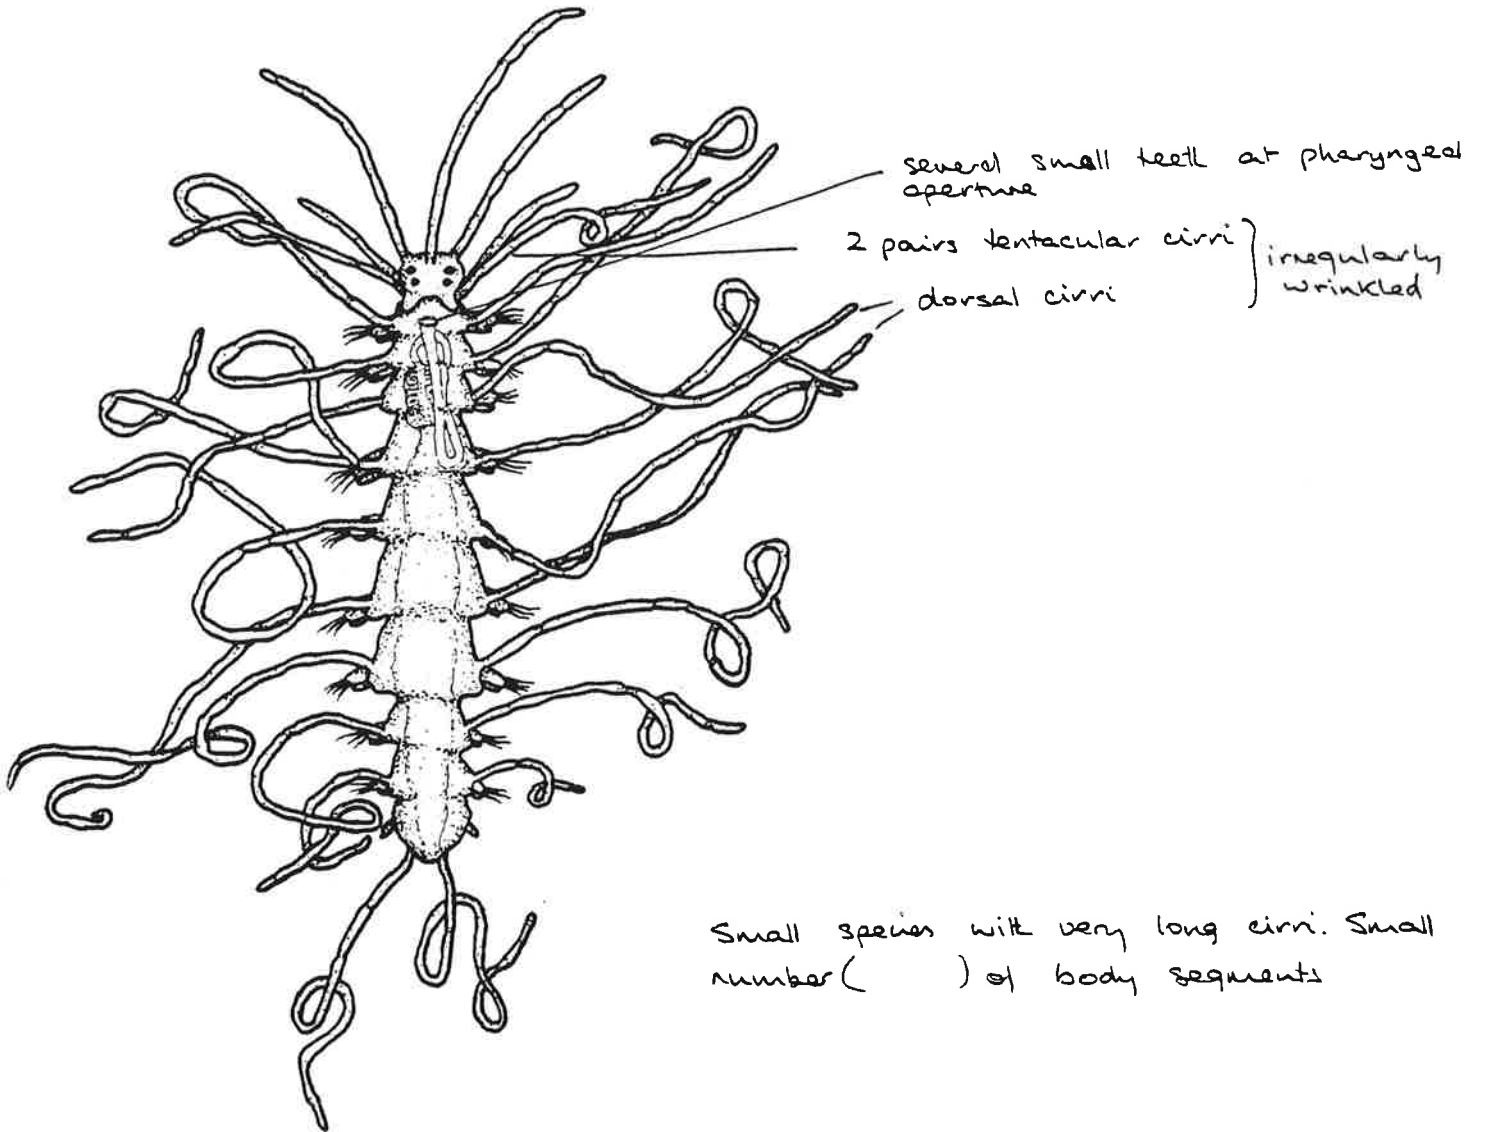 several small teeth at pharyngeal
aperture
2 pairs tentacular cirri
irregularly
wrinkled
dorsal cirri
Small species with very long cirri. Small
number (     ) of body segments